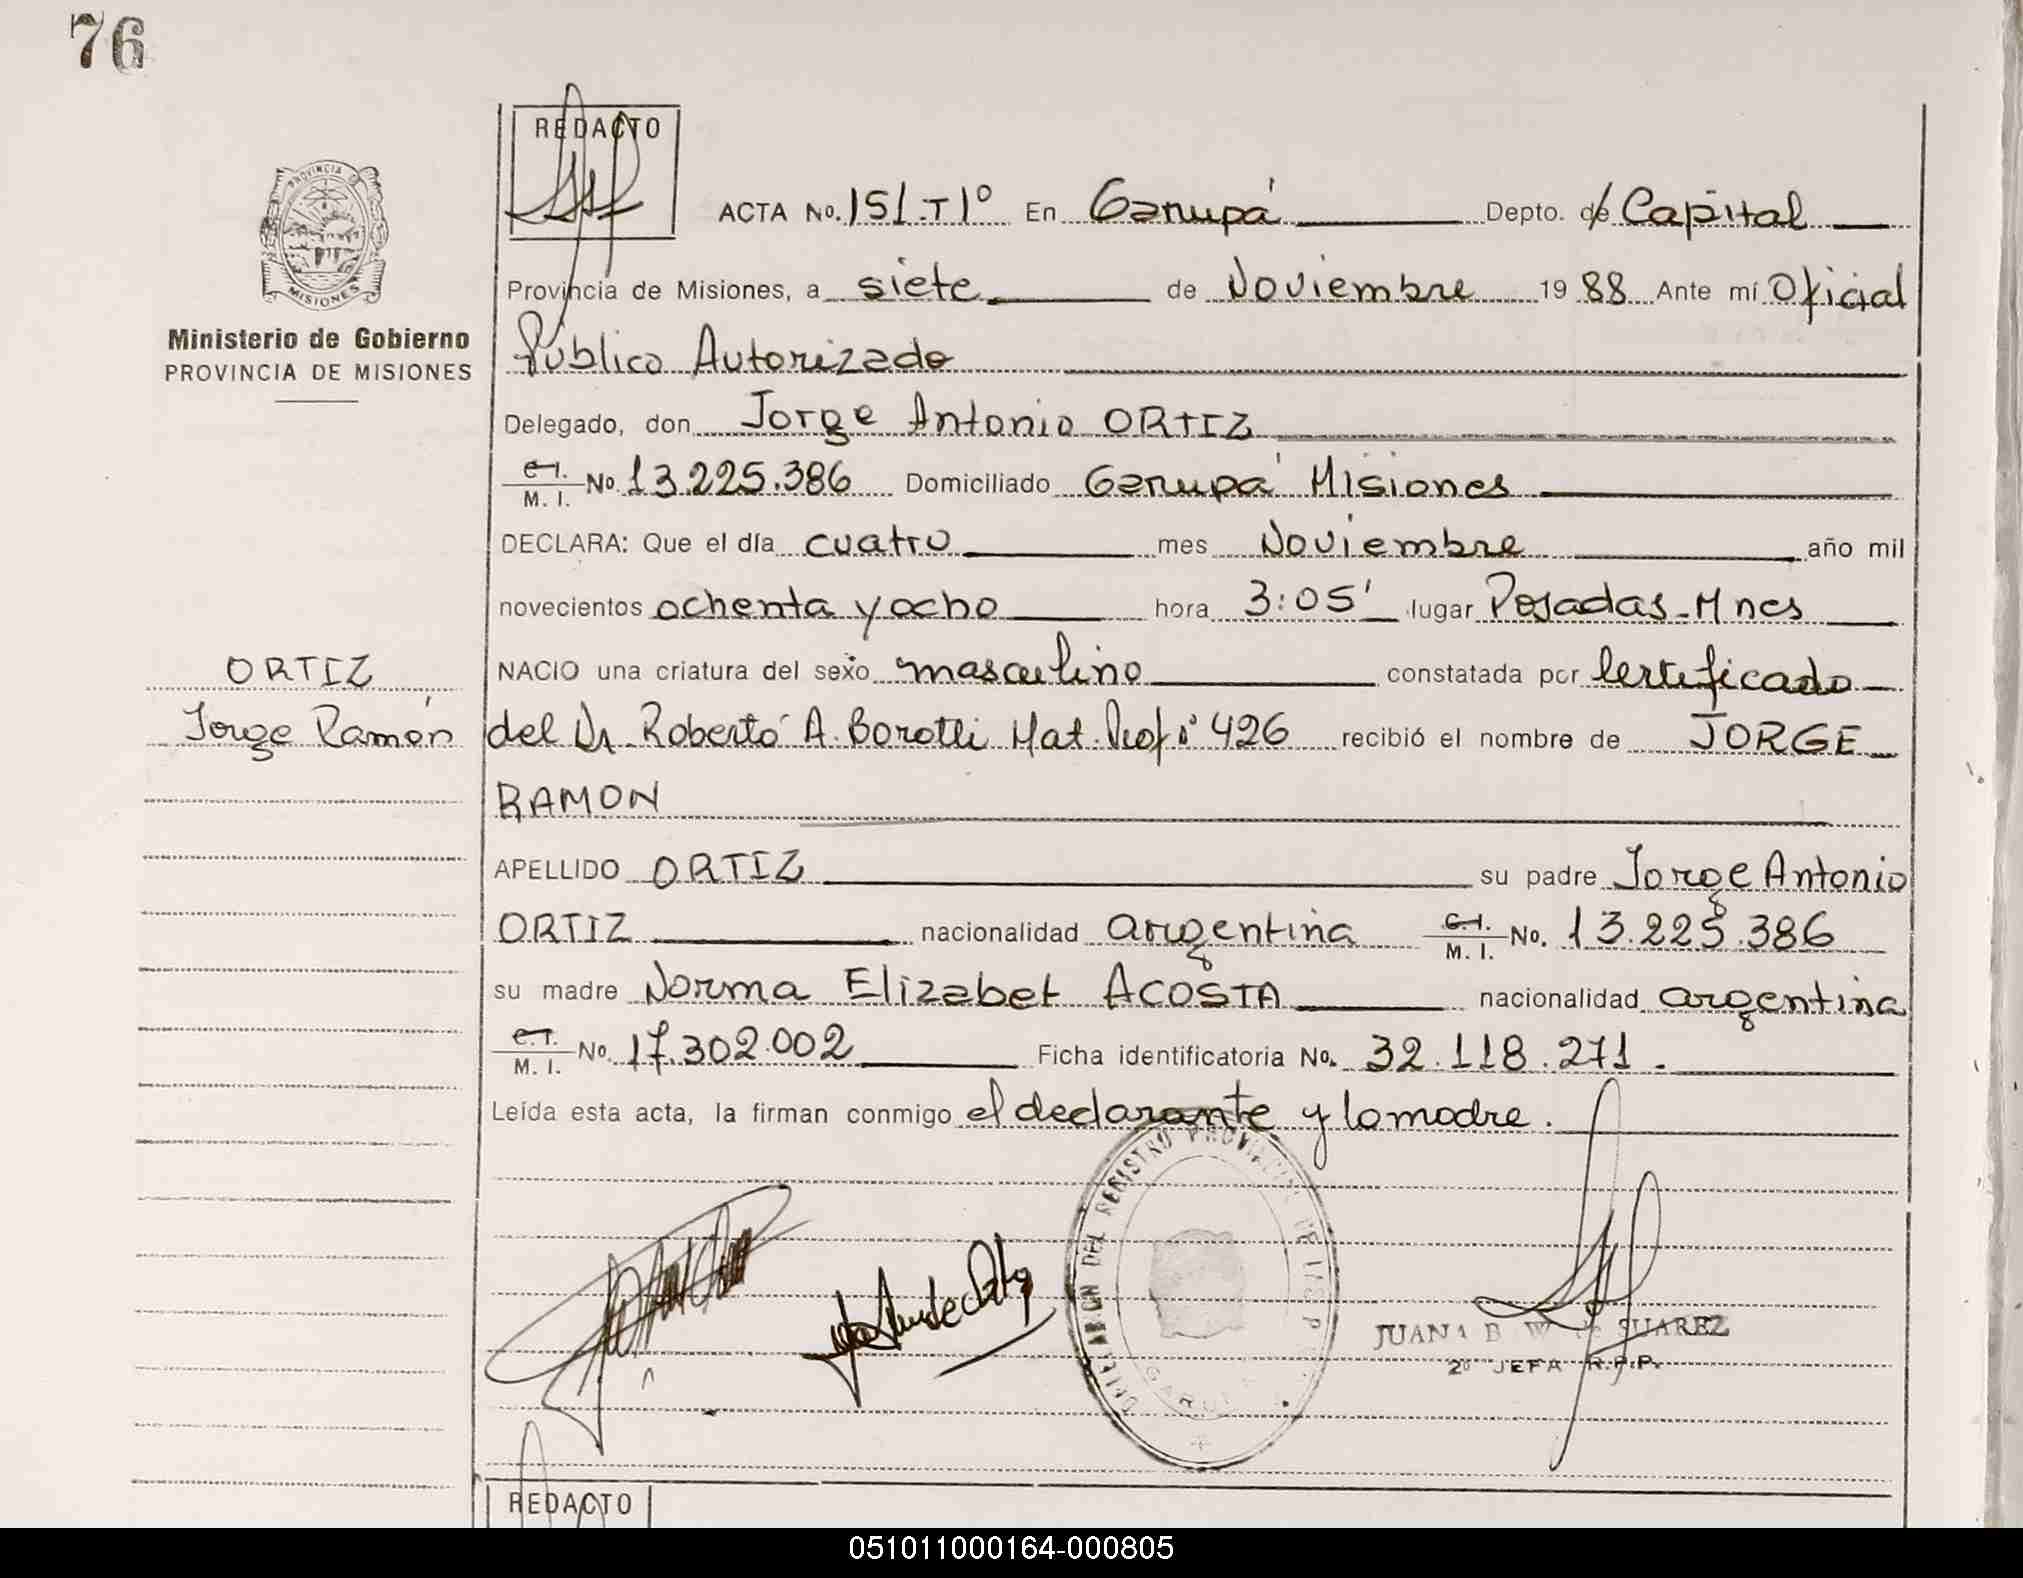 76
REDACTO
PROVINCIA DE
MISIONES
Ministerio de Gobierno
PROVINCIA DE MISIONES
ACTA No. 151.T1º En Garupá Depto. de Capital
Provincia de Misiones, a siete de Noviembre 1988 Ante mí Oficial
Público Autorizado
Delegado, don Jorge Antonio ORTIZ
C.I. M. I. No. 13.225.386 Domiciliado Garupá Misiones
DECLARA: Que el día cuatro mes Noviembre año mil
novecientos ochenta y ocho hora 3:05' lugar Posadas-Mnes
NACIO una criatura del sexo masculino constatada por Certificado
ORTIZ
Jorge Ramón
del Dr. Roberto A. Borotti Mat. Prof. 426 recibió el nombre de JORGE
RAMON
APELLIDO ORTIZ su padre Jorge Antonio
ORTIZ nacionalidad argentina C.I. M. I. No. 13.225.386
su madre Norma Elizabet ACOSTA nacionalidad argentina
C.I. M. I. No. 17.302.002 Ficha identificatoria No. 32.118.271.
Leída esta acta, la firman conmigo el declarante y la madre.
DELEGACION DEL REGISTRO PROVINCIAL DE LAS P
GARUPA
JUANA B. W. de SUAREZ
2º JEFA R.P.P.
REDACTO
051011000164-000805